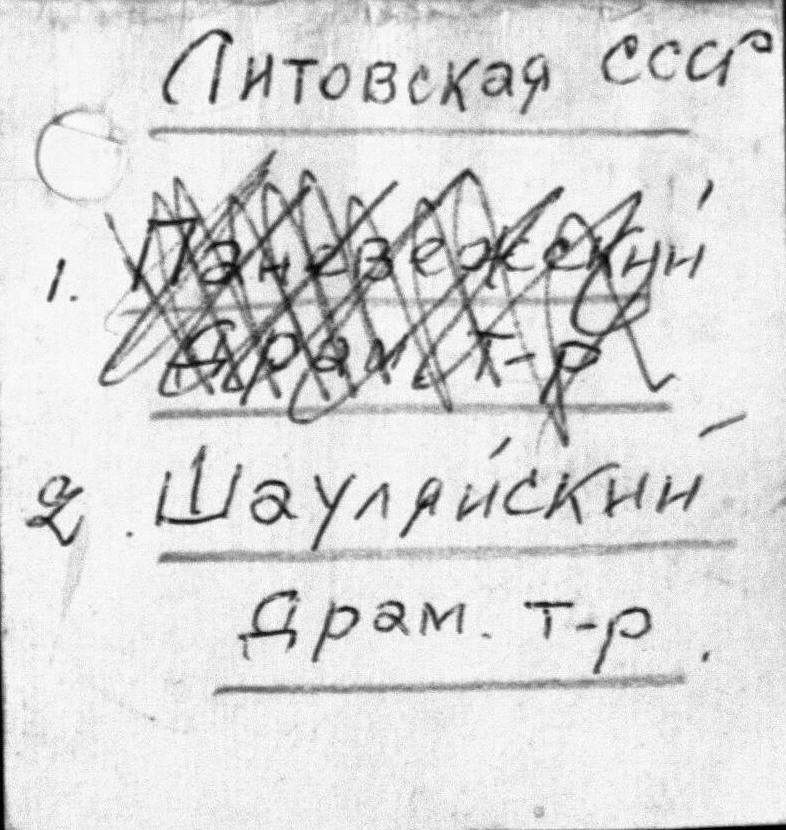 Литовская ССР
1. Паневежский
Драм. т-р
2. Шауляйский
Драм. т-р.